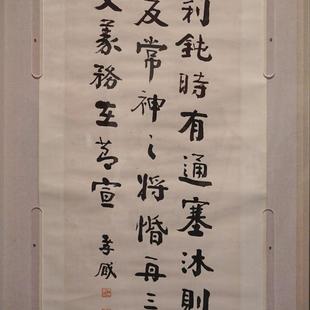 利鈍時有通塞沐則
反常神之將惛再三
文藝務在節宣 孝臧